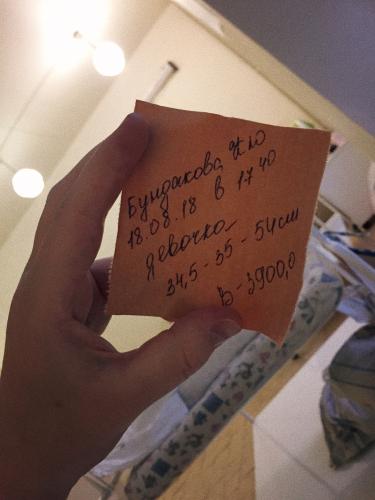 Бундакова Ж 10
18.08.18 в 17 40
девочка
34,5 - 35 - 54 см
В - 3900,0